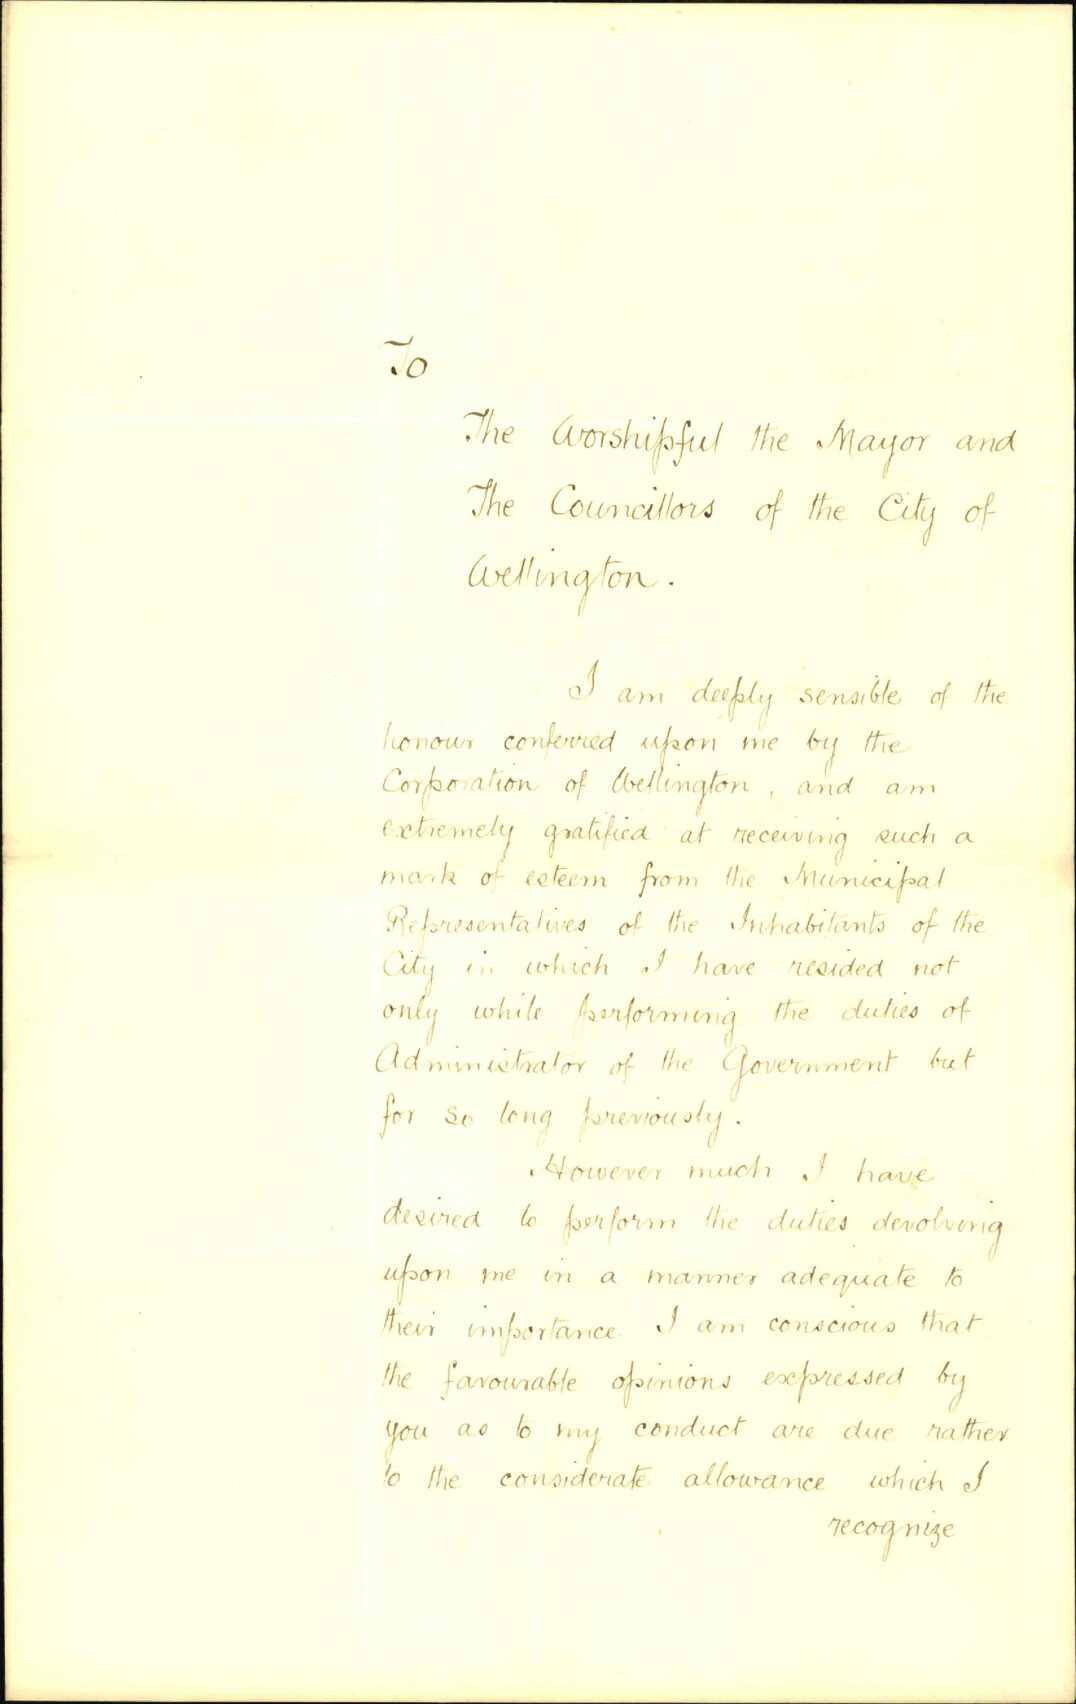 To
The Worshipful the Mayor and
The Councillors of the City of
Wellington.
I am deeply sensible of the
honour conferred upon me by the
Corporation of Wellington, and am
extremely gratified at receiving such a
mark of esteem from the Municipal
Representatives of the Inhabitants of the
City in which I have resided not
only while performing the duties of
Administrator of the Government but
for so long previously.
However much I have
desired to perform the duties devolving
upon me in a manner adequate to
their importance I am conscious that
the favourable opinions expressed by
you as to my conduct are due rather
to the considerate allowance which I
recognize